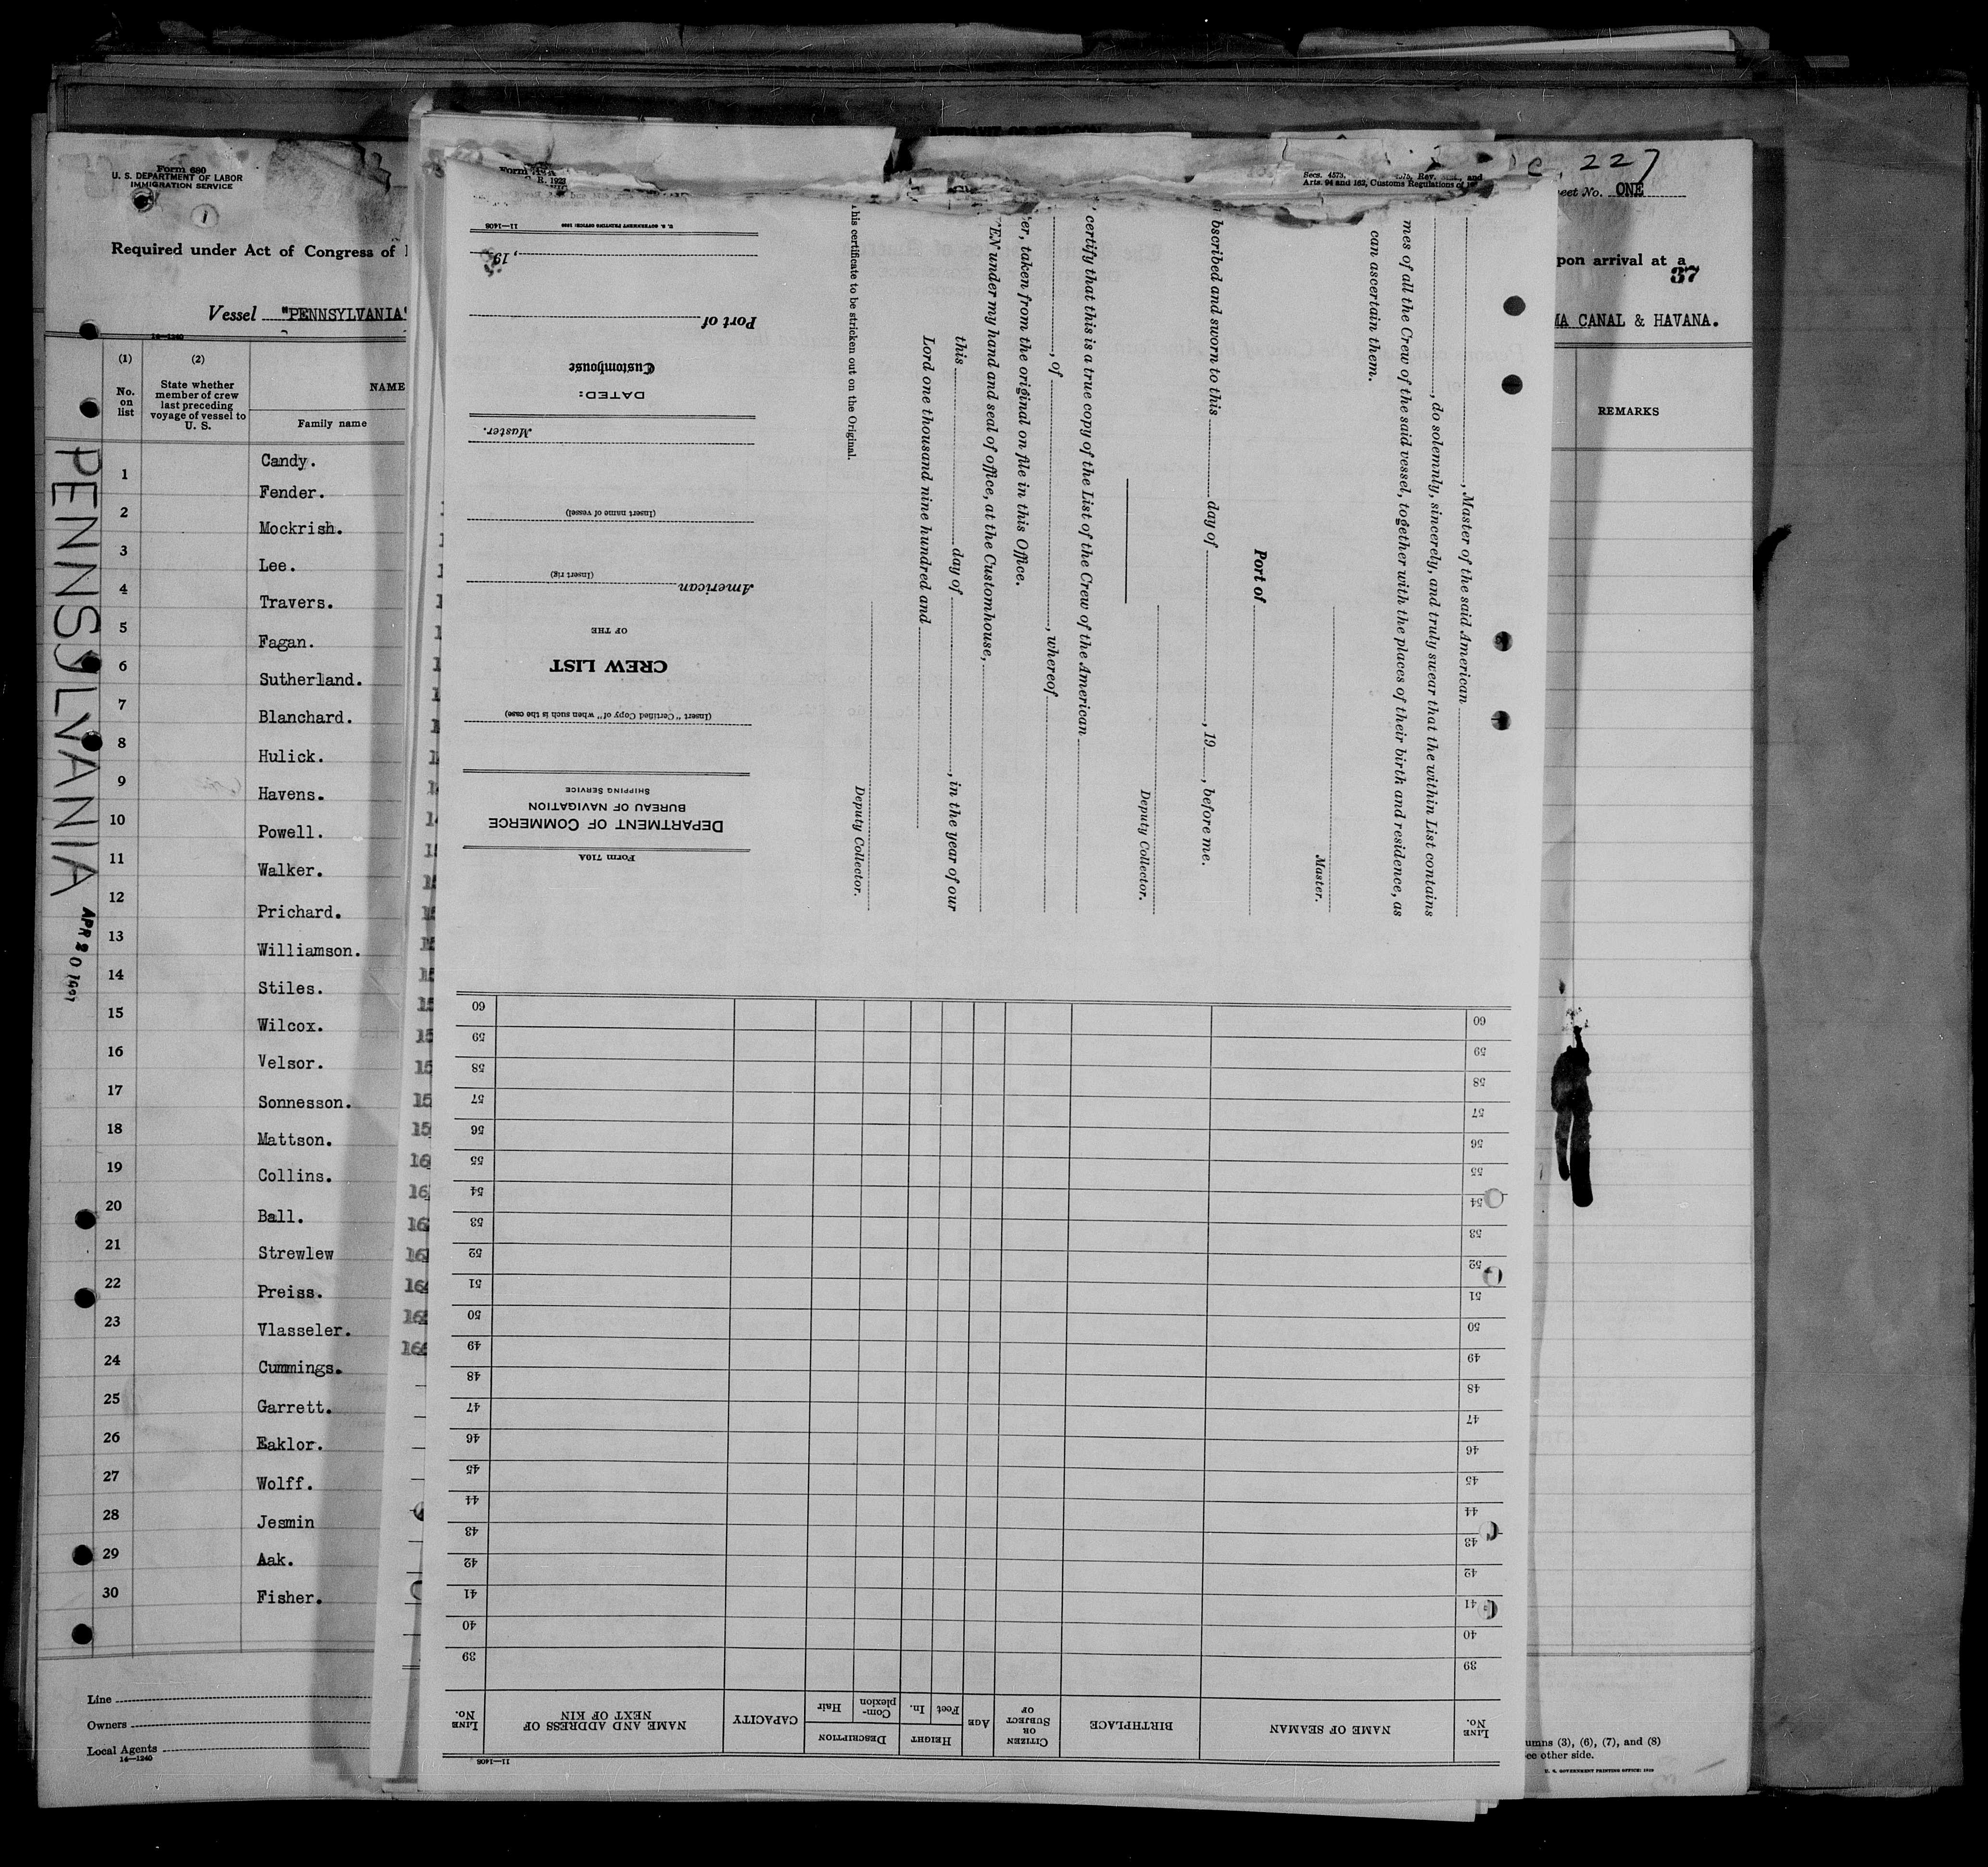 Form 680
U. S. DEPARTMENT OF LABOR
IMMIGRATION SERVICE
1
Required under Act of Congress of
Vessel "PENNSYLVANIA"
14—1240
(1)
No.
on
list
(2)
State whether
member of crew
last preceding
voyage of vessel to
U. S.
NAME
Family name
Candy.
1
Fender.
2
Mockrish.
3
Lee.
4
Travers.
5
Fagan.
6
Sutherland.
7
Blanchard.
8
Hulick.
9
Havens.
10
Powell.
11
Walker.
12
Prichard.
13
Williamson.
14
Stiles.
15
Wilcox.
16
Velsor.
17
Sonnesson.
18
Mattson.
19
Collins.
20
Ball.
21
Strewlew
22
Preiss.
23
Vlasseler.
24
Cummings.
25
Garrett.
26
Eaklor.
27
Wolff.
28
Jesmin
29
Aak.
30
Fisher.
Line
Owners
Local Agents
14—1240
PENNSYLVANIA
APR 20
227
eet No. ONE
pon arrival at a
37
MA CANAL & HAVANA.
REMARKS
umns (3), (6), (7), and (8)
ee other side.
U. S. GOVERNMENT PRINTING OFFICE: 1929
Secs. 4573, 4575, Rev. and
Arts. 94 and 162, Customs Regulations of
, Master of the said American
, do solemnly, sincerely, and truly swear that the within List contains
mes of all the Crew of the said vessel, together with the places of their birth and residence, as
can ascertain them.
Master.
Port of
bscribed and sworn to this day of , 19 , before me.
Deputy Collector.
certify that this is a true copy of the List of the Crew of the American
, of , whereof
er, taken from the original on file in this Office.
EN under my hand and seal of office, at the Customhouse,
this day of , in the year of our
Lord one thousand nine hundred and
Deputy Collector.
his certificate to be stricken out on the Original.
Form 710A
DEPARTMENT OF COMMERCE
BUREAU OF NAVIGATION
SHIPPING SERVICE
(Insert "Certified Copy of" when such is the case)
CREW LIST
OF THE
American
(Insert rig)
(Insert name of vessel)
Master.
DATED:
Customhouse
Port of
, 19
U. S. GOVERNMENT PRINTING OFFICE: 11—1406
11—1406
LINE No.
NAME OF SEAMAN
BIRTHPLACE
CITIZEN OR SUBJECT OF
AGE
HEIGHT
Feet
In.
DESCRIPTION
Com-plexion
Hair
CAPACITY
NAME AND ADDRESS OF NEXT OF KIN
LINE No.
39 39
40 40
41 41
42 42
43 43
44 44
45 45
46 46
47 47
48 48
49 49
50 50
51 51
52 52
53 53
54 54
55 55
56 56
57 57
58 58
59 59
60 60